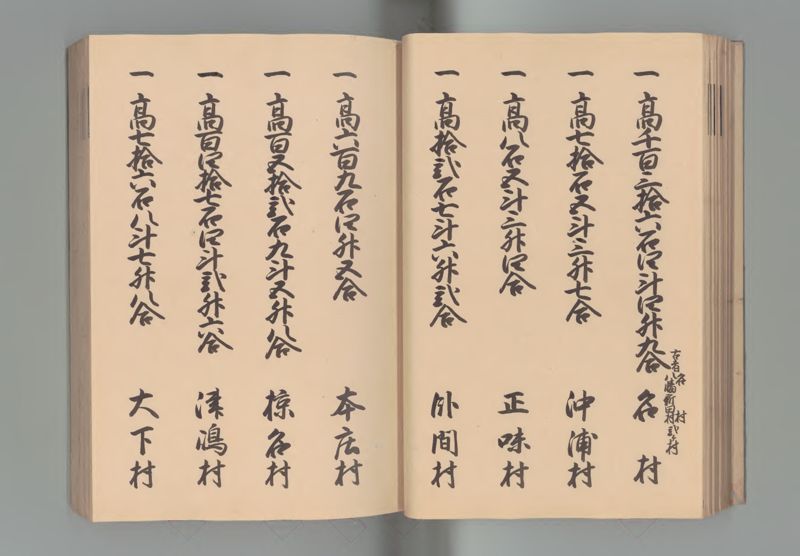 一高千百三拾六石四斗四升九合 名村
古者名村
八幡新田村弐ヶ村
一高七拾石五斗三升七合 沖浦村
一高八石五斗三升四合 正味村
一高拾弐石七斗六升弐合 外間村
一高六百九石四升五合 本庄村
一高百五拾弐石九斗五升八合 椋名村
一高百四拾七石四斗弐升六合 津嶋村
一高七拾六石八斗七升八合 大下村